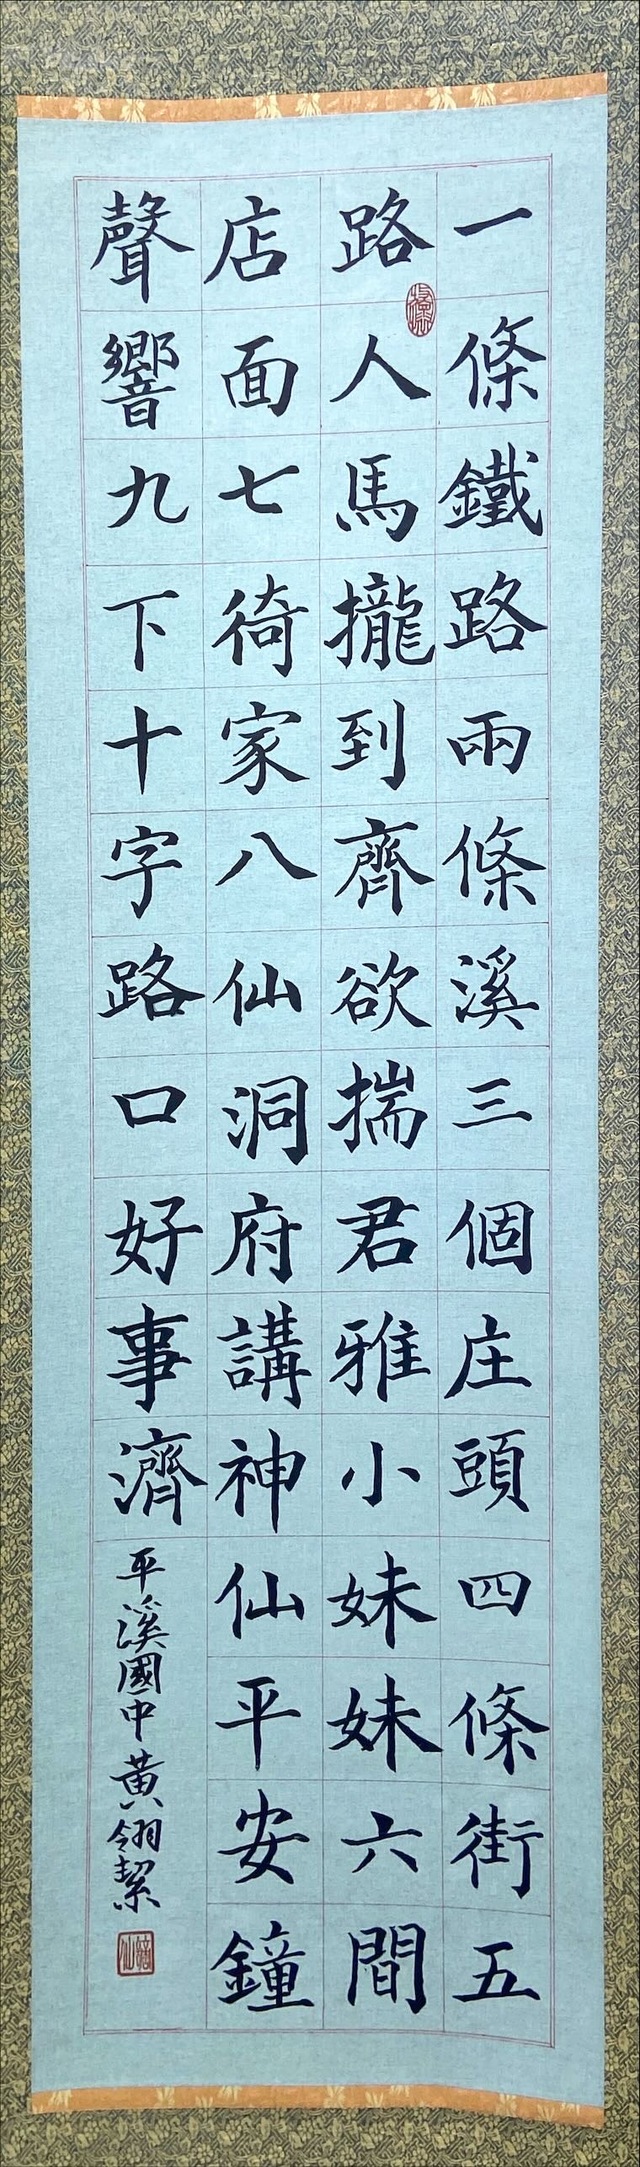 一條鐵路兩條溪三個庄頭四條街五
路人馬攏到齊欲揣君雅小妹妹六間
店面七徛家八仙洞府講神仙平安鐘
聲響九下十字路口好事濟
平溪國中黃翎絜